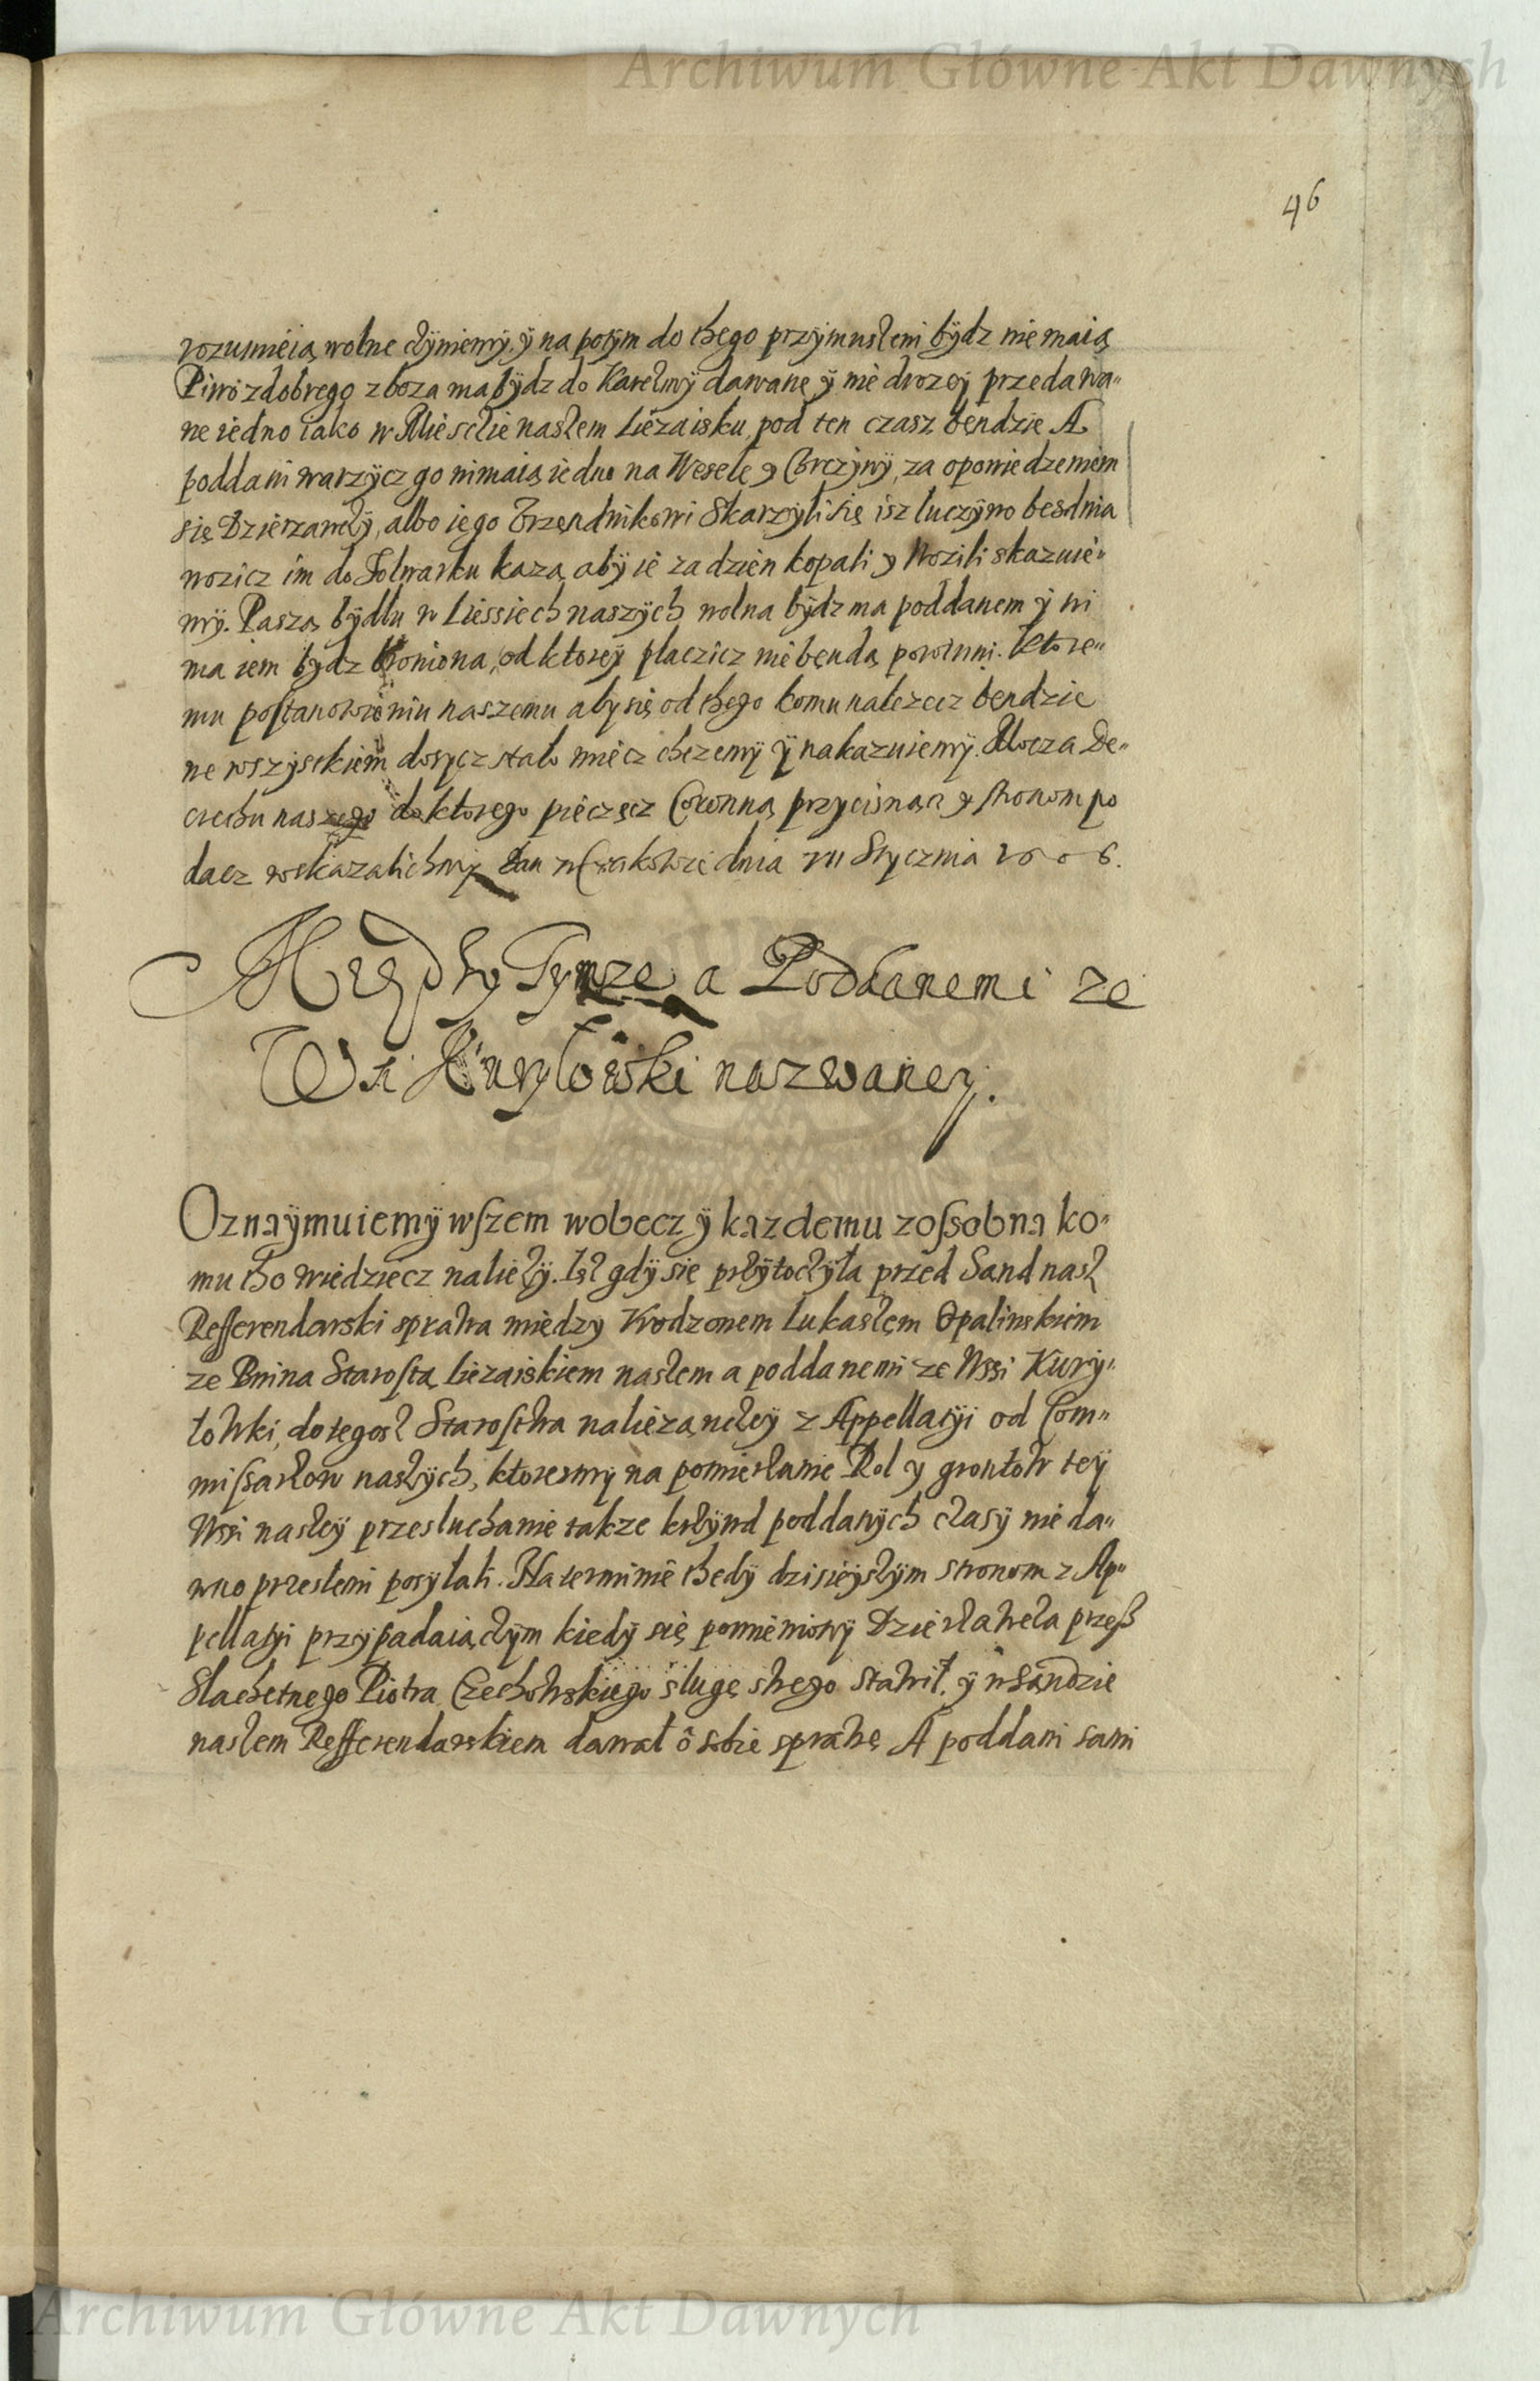 Archiwum Główne Akt Dawnych
46
rozumieią wolne czyniemy. ÿ na potÿm do thego przÿmuszeni bÿdz nie maią
Piwo z dobrego zboza ma bÿdz do Karczmÿ dawane ÿ nie drozeÿ przedawa„
ne iedno iako w Miescie naszem Liezaisku, pod ten czasz bendzie A
poddani warzÿcz go nimaią iedno na Wesele y Chrczinÿ, za opowiedzeniem
się Dzierzawcÿ, albo iego Vrzendnikowi Skarzyli się isz luczÿwo besdnia
wozicz im do Folwarku kazą abÿ ie za dzien kopali y Wozili skazuie„
mÿ. Pasza bÿdłu w Liessiech naszÿch wolna bÿdz ma poddanem ÿ ni
ma iem bydz broniona, od ktoreÿ płaczicz nie będą powinni. Ktore„
mu postanowieniu naszemu aby się od thego komu nalezecz bendzie
we wszÿstkiem dosycz stało miecz chczemÿ ÿ nakazuiemÿ. Mocza De„
crethu naszego do ktorego pieczęcz Coronną przycisnącz y stronom po
dacz wskazalichmy Dan w Crakowie dnia VII Stycznia 1606.
Między Tymze a Poddanemi ze
Wsi Kurylowki nazwaney.
Oznaÿmuiemÿ wszem wobecz ÿ kazdemu zossobna ko„
mu tho wiedziecz należÿ. Isz gdÿ się przÿtoczÿła przed Sand nasz
Refferendarski sprawa miedzy Vrodzonem Lukaszem Opalinskiem
ze Bnina Starostą Liezaiskiem naszem a poddanemi ze Wssi Kurÿ„
łowki, do tegosz Starostwa naliezanczeÿ z Appellatÿi od Com„
missarzow naszÿch, ktoresmÿ na pomierzanie Rol y grontow teÿ
Wssi naszeÿ przesluchanie takze krzÿwd poddanÿch czasÿ nie da„
wno przeszłemi posÿłali. Na terminie thedÿ dzisieÿszÿm stronom z Ap„
pellatÿi przÿpadaiączÿm kiedÿ się pomieniony Dzierzawcza przesz
Slachetnego Piotra Czechowskiego sługę swego stawił, ÿ w Sandzie
naszem Refferendarskiem dawał o sobie sprawę A poddani sami
Archiwum Główne Akt Dawnych